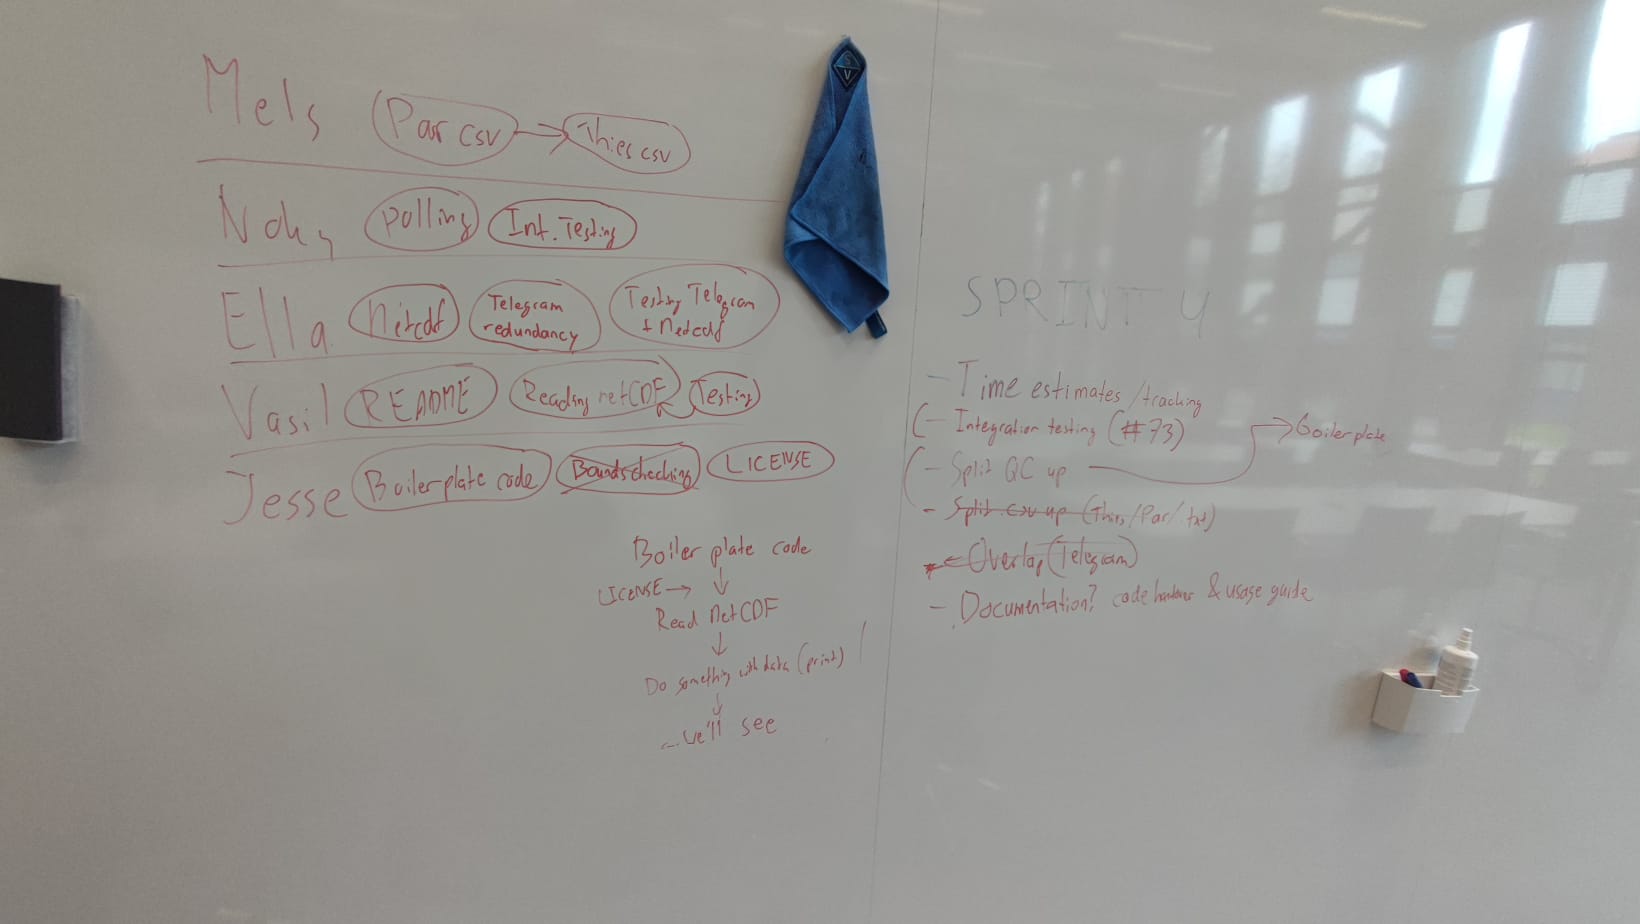 Mels Par csv → Thies csv
Ndh polling Int. Testing
Ella Netcdf Telegram redundancy Testing Telegram + Netcdf
Vasil README Reading netCDF Testing
Jesse Boilerplate code Boundschecking LICENSE
Boiler plate code
↓
LICENSE →
Read NetCDF
↓
Do something with data (print)
↓
...we'll see
SPRINT 4
- Time estimates/tracking
- Integration testing (#73)
- Split QC up → Boilerplate
- Split csv up (Thies/Par/.txt)
- Overlap (Telegram)
- Documentation? code & usage guide
S
V